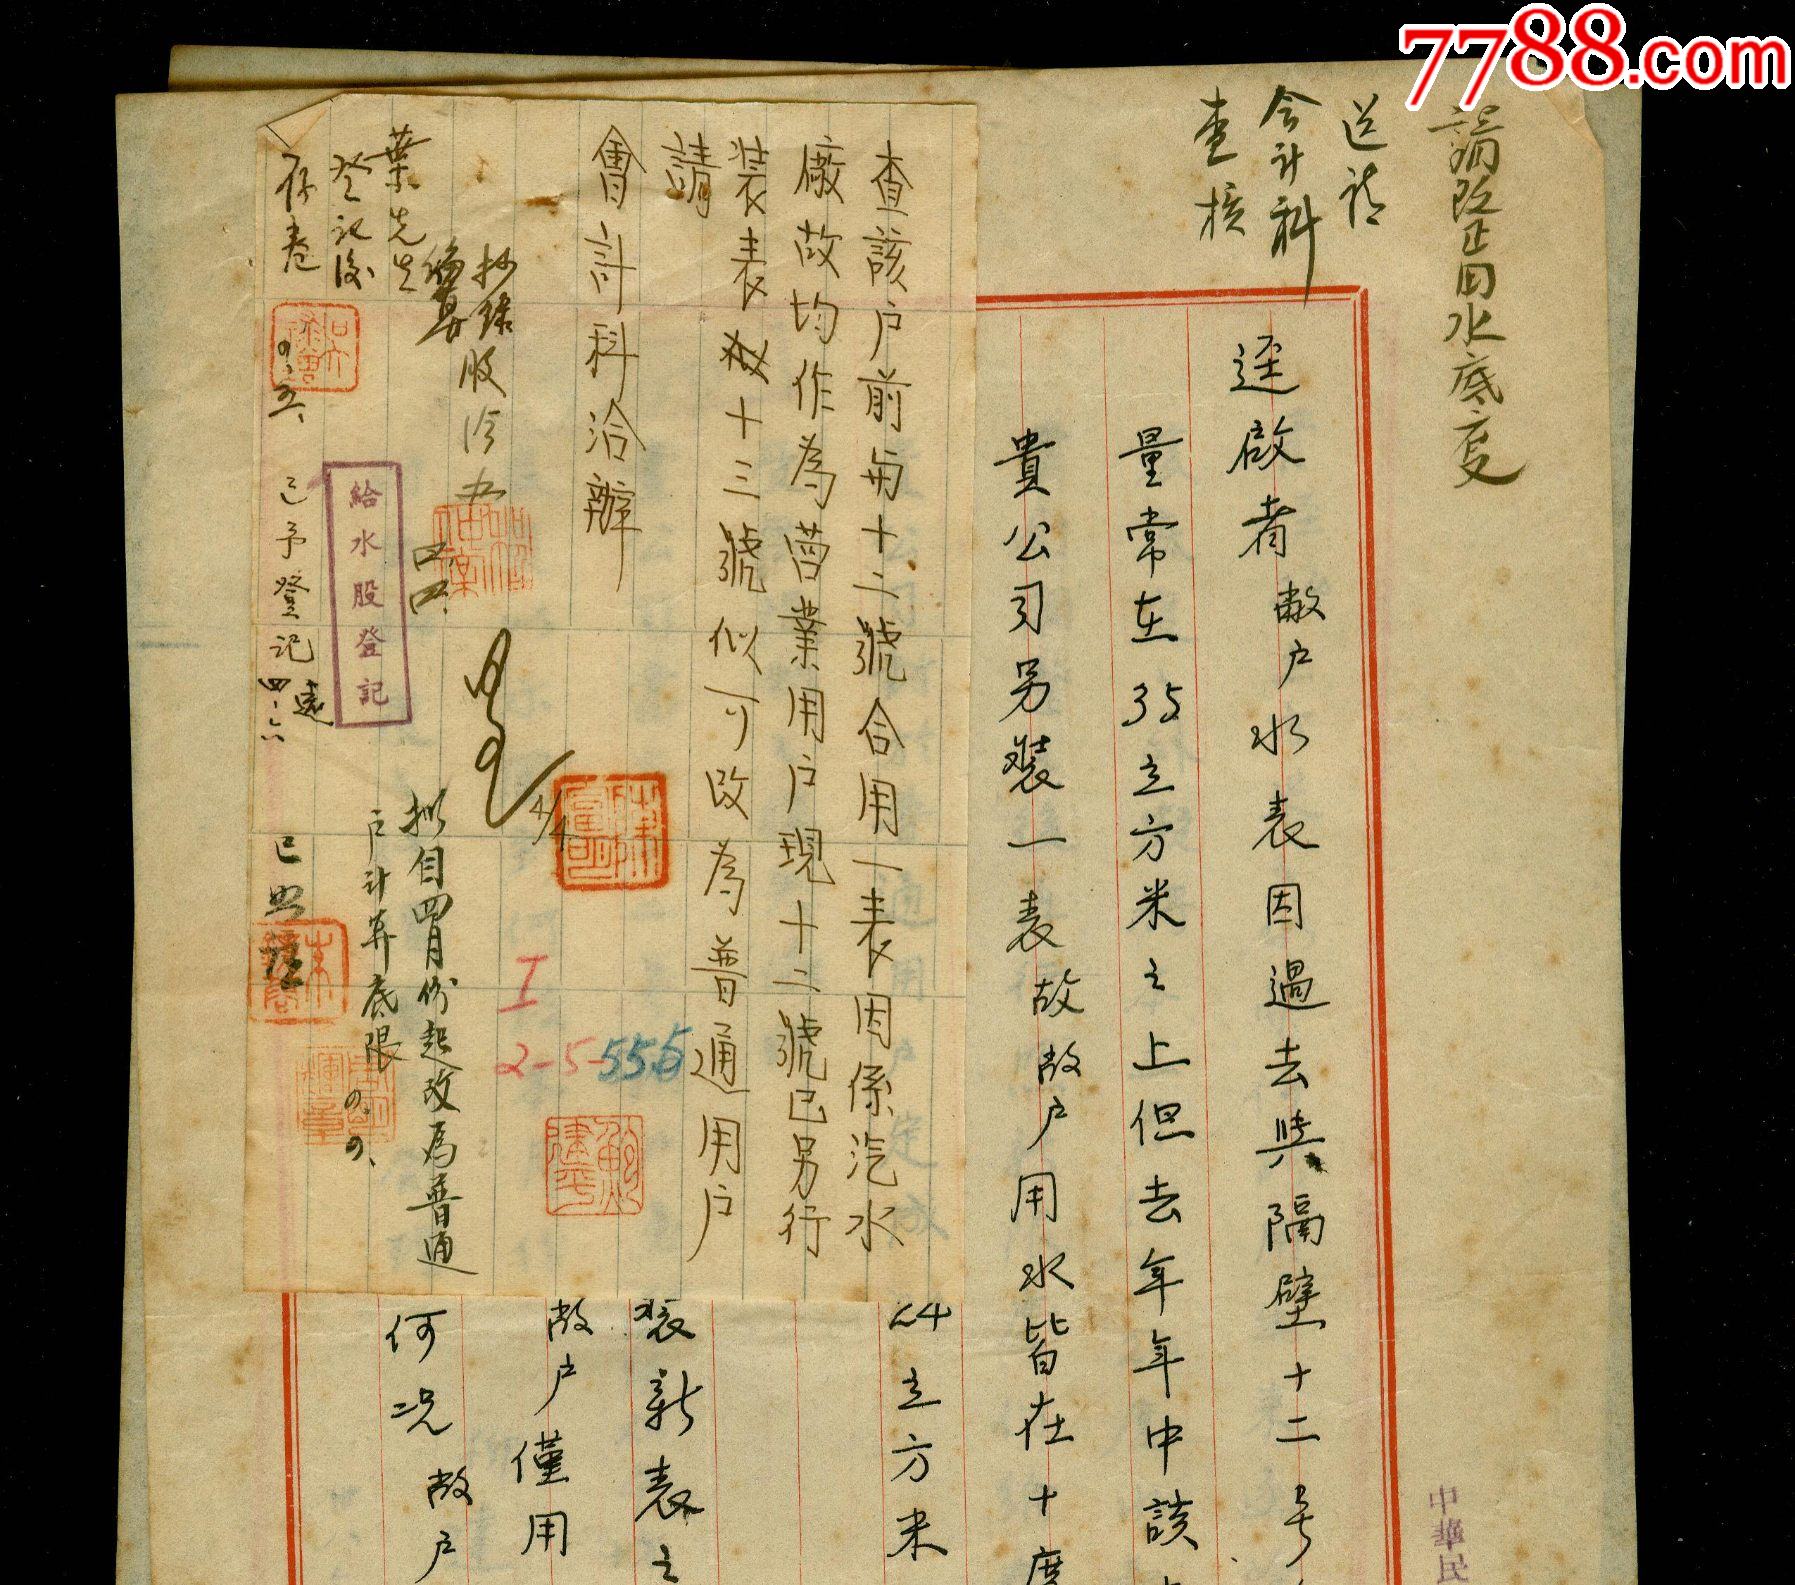 7788.com
請改正用水底度
送請
会计科
查核
逕啟者敝户水表因過去與隔壁十二号
量常在35立方米之上但去年年中該
貴公司另裝一表故敝户用水皆在十度
立方米
裝新表之
敝户僅用
何况敝户
查該户前与十二號合用一表因係汽水
廠故均作為营業用户現十二號已另行
裝表十三號似可改為普通用户
請
會計科洽辦
抄錶股
葉先生
登記後
存卷
給水股登記
已予登記
四.六
4/4
拟自四月份起改為普通
户计算底限
I
2-5-555
中華民